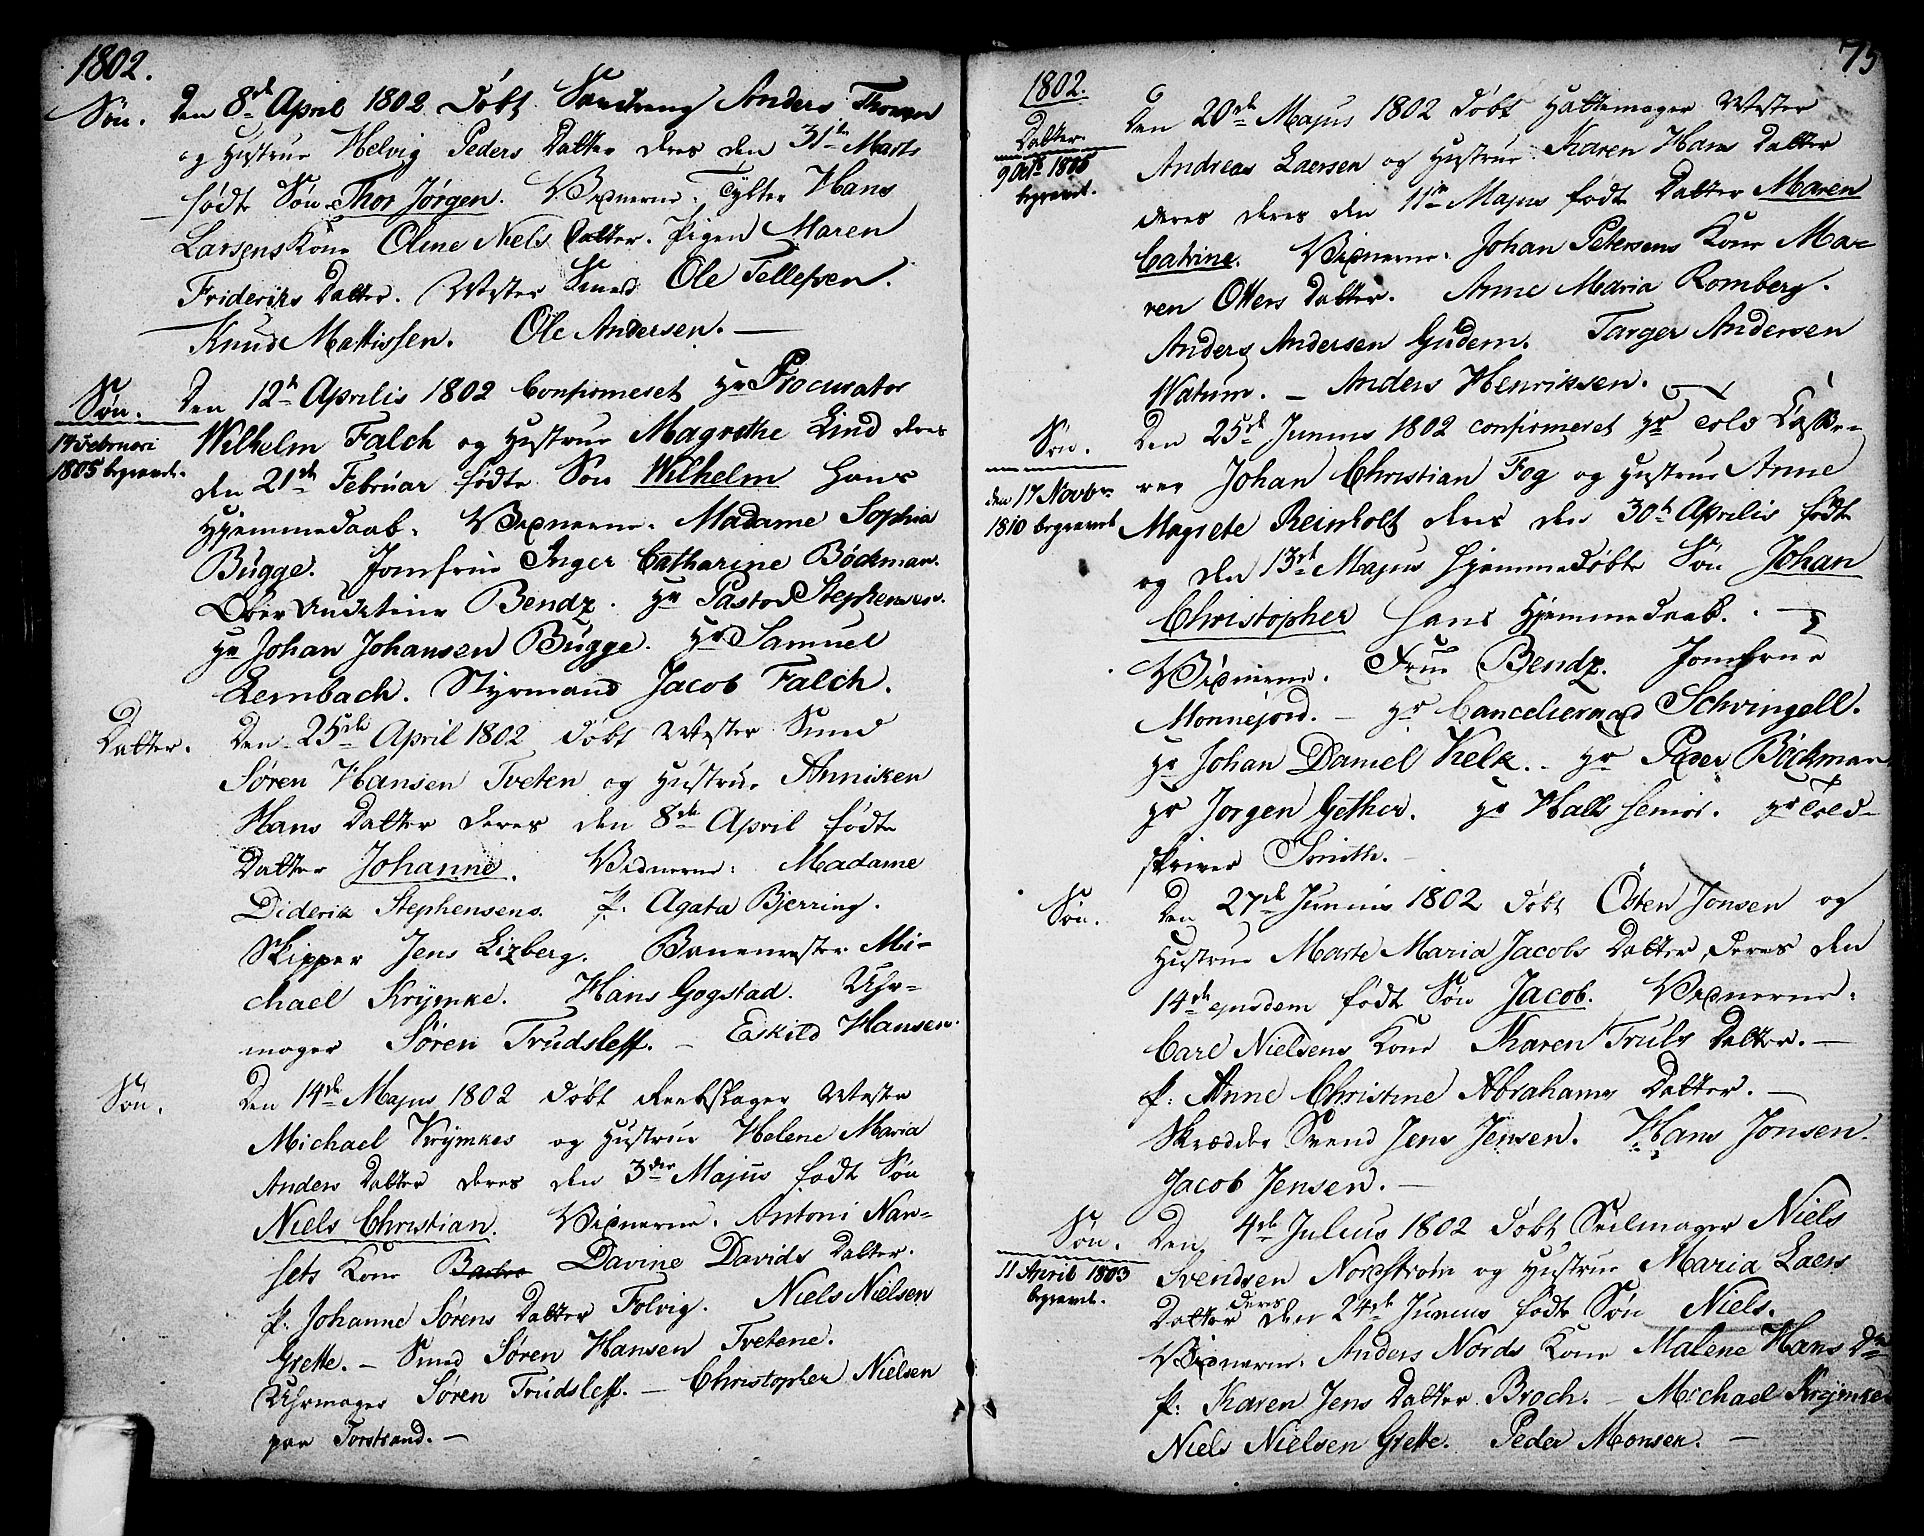 1802.
Søn. Den 8de April 1802 døbt Anders Thorsen
og Hustrue Helvig Peders Datter deres den 31te Marts
fødte Søn Thor Jørgen. Vidnerne. Hans
Larsens Kone Oline Niels Datter. Pigen Maren
Frideriks Datter. Mester Smed Ole Tellefsen.
Knud Mattissen. Ole Andersen.
Søn. Den 12te Aprilis 1802 Confirmeret Hr Procurator
14 Februari
1805 begravet.
Wilhelm Falch og Hustrue Magrethe Lind deres
den 21de Februar fødte Søn Wilhelm Hans
Hjemmedaab. Vidnerne. Madame Sophia
Bugge. Jomfrue Inger Catharine Böckman.
Ober Auditeur Bendz. Hr Pastor Stephensen.
Hr Johan Johansen Bugge. Hr Samuel
Lernbach. Styrmand Jacob Falch.
Datter. Den 25de April 1802 døbt Mester Smed
Søren Hansen Tveten og Hustrue Anniken
Hans Datter deres den 8de April fødte
Datter Johanne. Vidnerne: Madame
Diderik Stephensens. P. Agata Bjerring.
Skipper Jens Lizberg. Banemester Mi-
chael Krÿmke. Hans Gogstad. Uhr-
mager Søren Trudsleff. - Eskild Hansen.
Søn. Den 14de Majus 1802 døbt Reebslager Mester
Michael Krÿmkes og Hustrue Helene Maria
Anders Datter deres den 3die Majus født Søn
Niels Christian. Vidnerne. Antoni Nan-
sets Kone Davine Davids Datter.
P. Johanne Sørens Datter Folvig. Niels Nielsen
Grette. - Smed Søren Hansen Tvetene.
Uhrmager Søren Trudsleff. - Christopher Nielsen
paa Torstrand. -
75
1802.
Datter.
9 Octb 1805
begravet.
Den 20de Majus 1802 døbt Hattemager Mester
Andreas Laersen og Hustrue Karen Hans Datter
deres deres den 11te Majus født Datter Maren
Catrine. Vidnerne. Johan Petersens Kone Ma-
ren Otters Datter. Anne Maria Romberg.
Anders Andersen Gudem. Targer Andersen
Watum. - Anders Henriksen.
Søn. Den 25de Junius 1802 confirmeret Hr Told Casse-
den 17 Novbr
1810 begravet
rer Johan Christian Fog og Hustrue Anne
Magrete Reinholt deres den 30te Aprilis født
og den 13de Majus Hjemmedøbte Søn Johan
Christopher Hans Hjemmedaab.
Vidnerne. Frue Bendz. Jomfrue
Monnejord. - Hr Cancelieraad Schvingell.
Hr Johan Daniel Kelk. - Hr Peder Böckman
Hr Jorgen Gether. Hr Halls senior. Hr Told-
skriver Smith. -
Søn. Den 27de Junius 1802 døbt Östen Jonsen og
Hustrue Marte Maria Jacobs Datter, deres den
14de ejusdem født Søn Jacob. Vidnerne.
Carl Nielsens Kone Karen Truls Datter. -
P. Anne Christine Abrahams Datter. -
Skrædder Svend Jens Jensen. Hans Jonsen.
Jacob Jensen. -
Søn. Den 4de Julius 1802 døbt Seilmager Niels
11 April 1803
begravet.
Svendsen Nordstrøm og Hustrue Maria Laers
Datter deres den 24de Junius fødte Søn Niels.
Vidnerne. Anders Nords Kone Malene Hans Dr
P. Karen Jens Datter Broch. - Michael Krÿmke
Niels Nielsen Grette. Peder Monsen. -